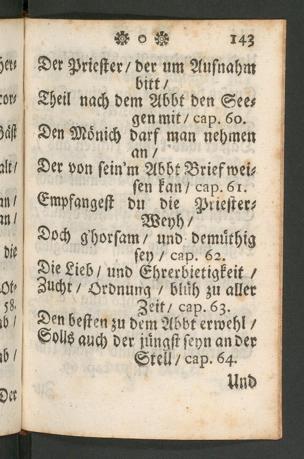 143
Der Priester / der um Aufnahm
bitt /
Theil nach dem Abbt den See-
gen mit / cap. 60.
Den Mönich darf man nehmen
an /
Der von sein'm Abbt Brief wei-
sen kan / cap. 61.
Empfangest du die Priester-
Weyh /
Doch g'horsam / und demüthig
sey / cap. 62.
Die Lieb / und Ehrerbietigkeit /
Zucht / Ordnung / blüh zu aller
Zeit / cap. 63.
Den besten zu dem Abbt erwehl /
Solls auch der jüngst seyn an der
Stell / cap. 64.
Und